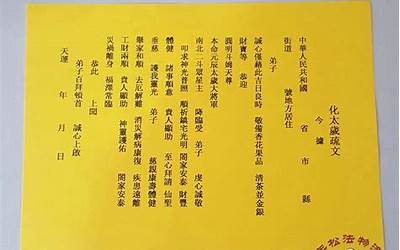 化太歲疏文
今據
中華人民共和國 省 市 縣
街道 號地方居住
弟子
誠心僅藉此吉日良時 敬備香花果品 清茶並金銀
財寶等 恭迎
圓明斗姆天尊
本命元辰太歲大將軍
南北二斗眾星主 降臨受 弟子 虔心誠敬
叩求神光普照 順祈鎮宅光明 閤家安泰 財豐
體健 諸事順意 貴人顯助 至心拜請 仙聖
垂慈 護我靈光 弟子 慈親康壽體健
舉家和順 去厄解難 消災解病康復 疾患遠離
工財兩順 貴人顯助 神靈護佑
災禍離身 福澤常臨 閤家安泰
恭此 上聞
弟子百拜頓首 誠心上啟
天運 年 月 日
松法物流